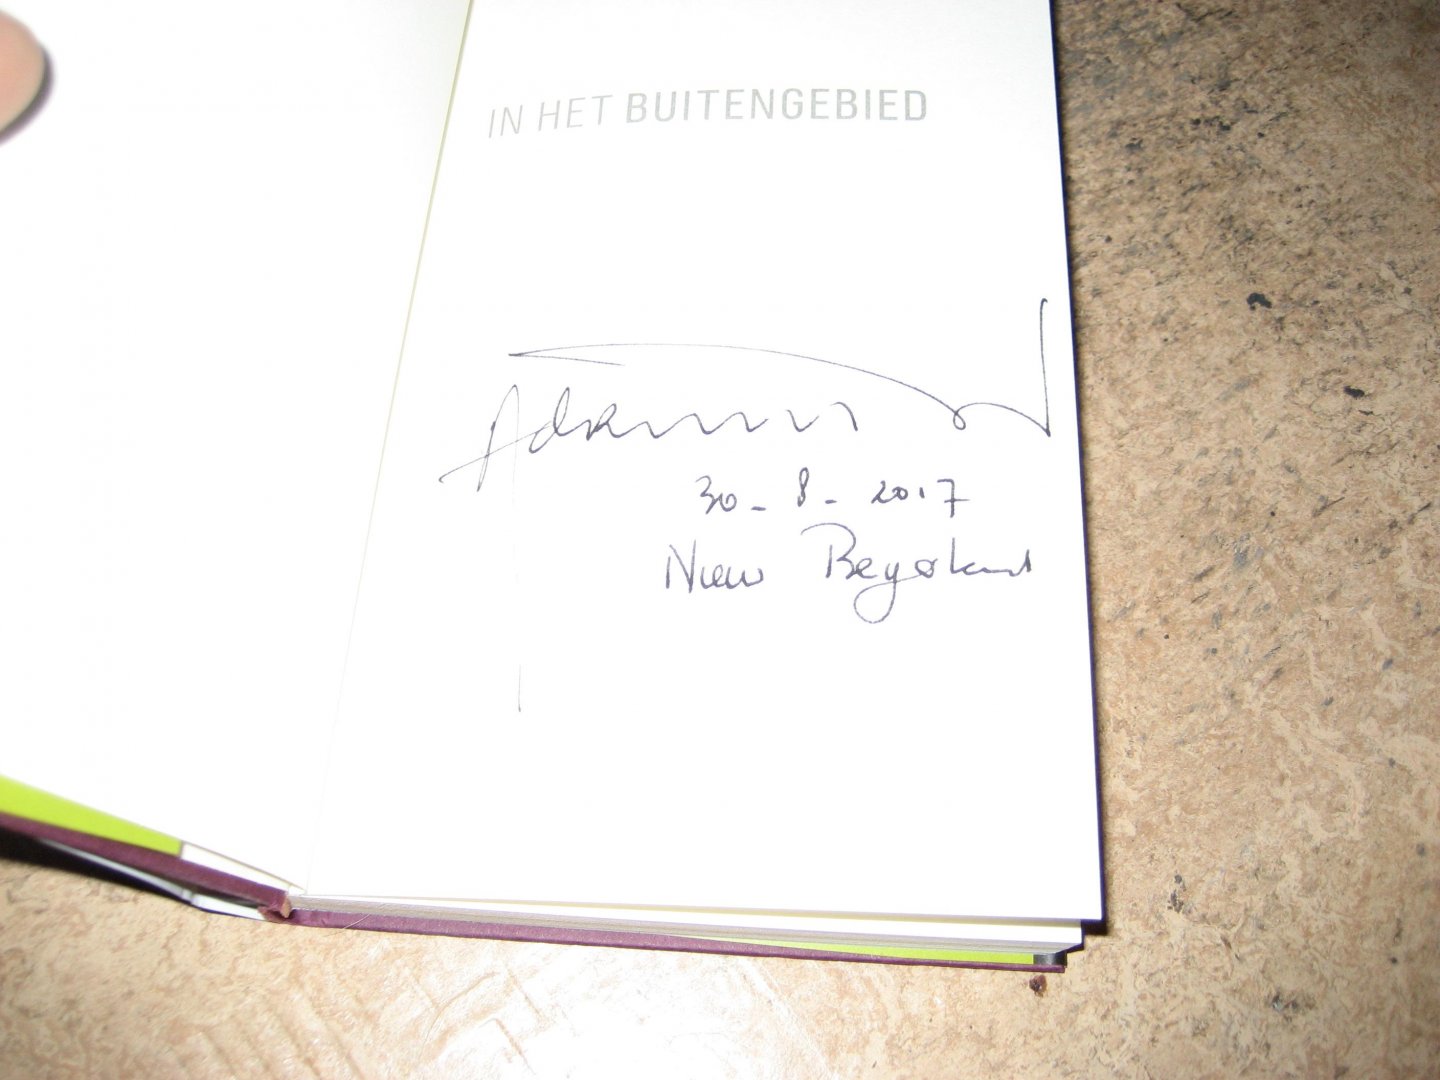 IN HET BUITENGEBIED
30-8-2017
Nieuw Beyerland